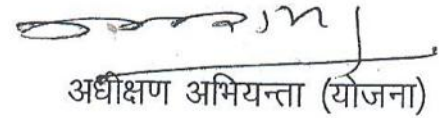 अधीक्षण अभियन्ता (योजना)